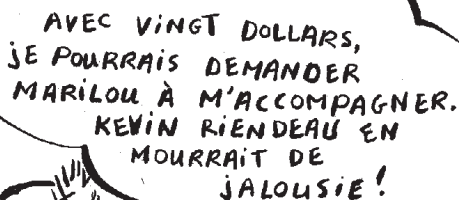 AVEC VINGT DOLLARS,
JE POURRAIS DEMANDER
MARILOU À M'ACCOMPAGNER.
KEVIN RIENDEAU EN
MOURRAIT DE
JALOUSIE !